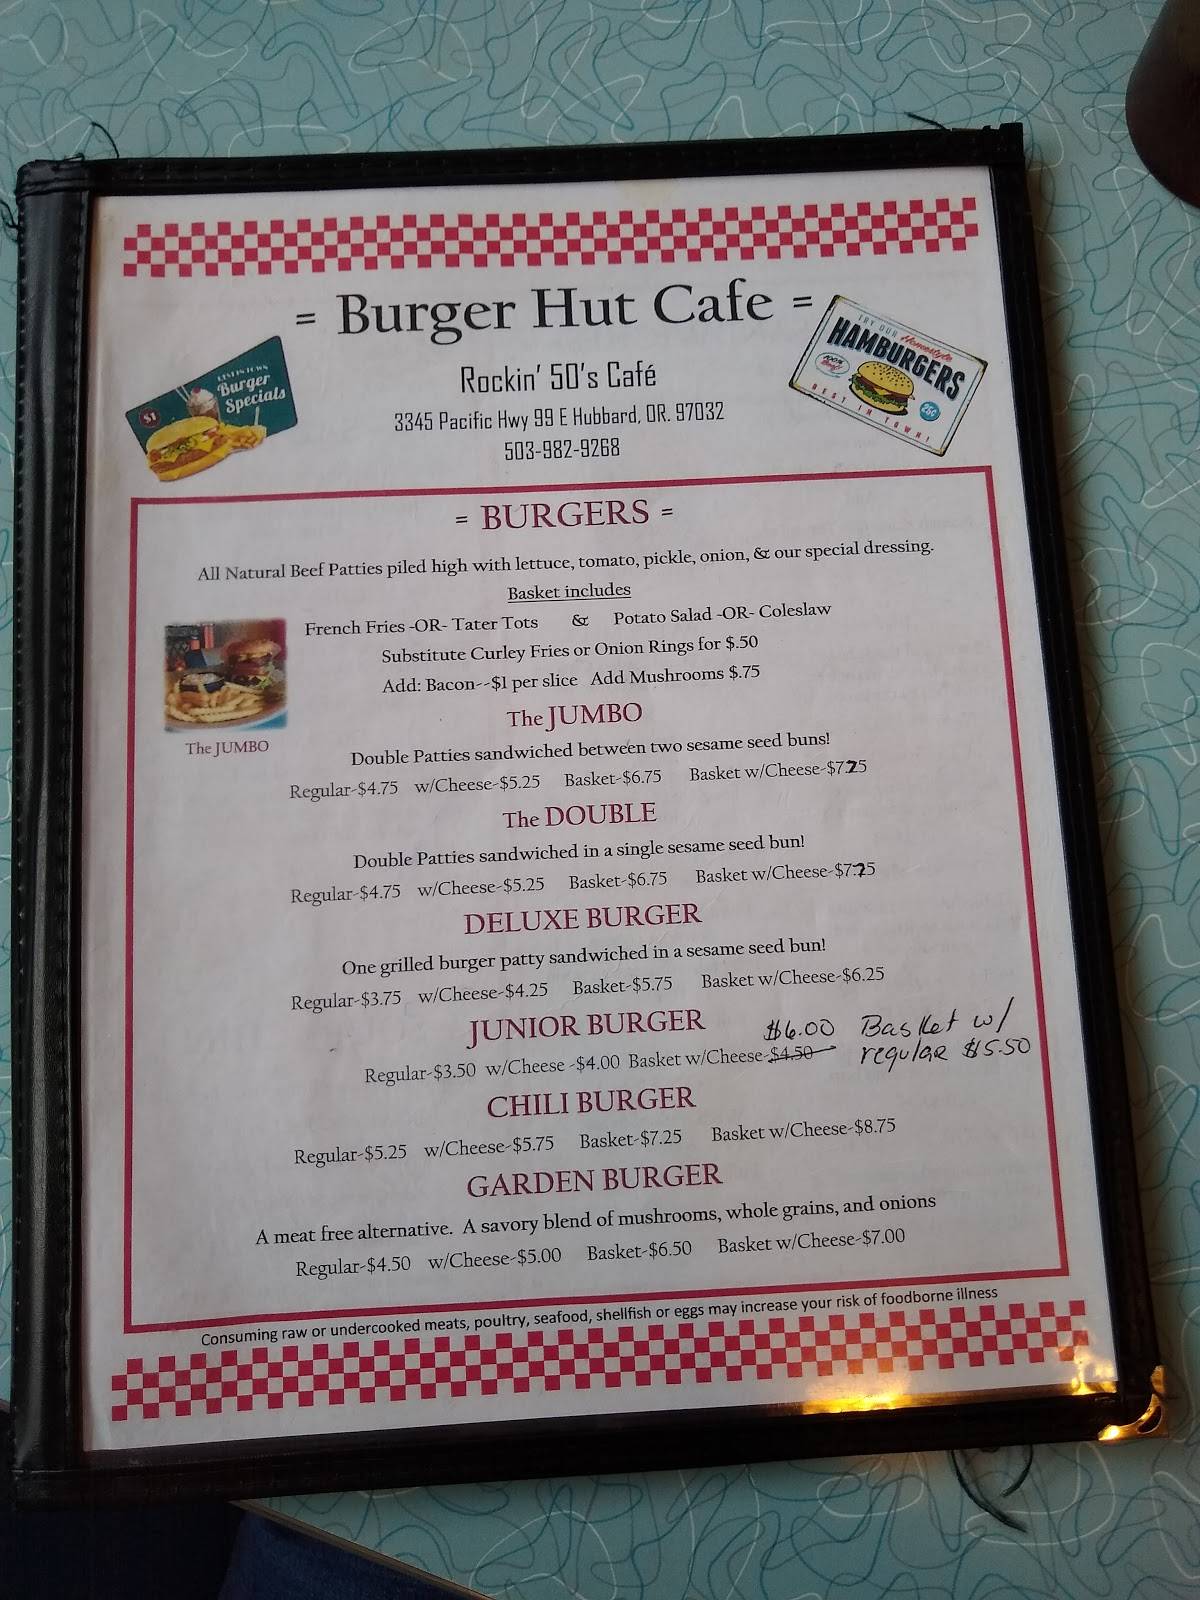 = Burger Hut Cafe =
BEST IN TOWN
Burger
Specials
$1
TRY OUR Homestyle
HAMBURGERS
100%
Beef!
25¢
BEST IN TOWN!
Rockin' 50's Café
3345 Pacific Hwy 99 E Hubbard, OR. 97032
503-982-9268
= BURGERS =
All Natural Beef Patties piled high with lettuce, tomato, pickle, onion, & our special dressing.
Basket includes
French Fries -OR- Tater Tots & Potato Salad -OR- Coleslaw
Substitute Curley Fries or Onion Rings for $.50
Add: Bacon--$1 per slice Add Mushrooms $.75
The JUMBO
The JUMBO
Double Patties sandwiched between two sesame seed buns!
Regular-$4.75 w/Cheese-$5.25 Basket-$6.75 Basket w/Cheese-$7.25
The DOUBLE
Double Patties sandwiched in a single sesame seed bun!
Regular-$4.75 w/Cheese-$5.25 Basket-$6.75 Basket w/Cheese-$7.25
DELUXE BURGER
One grilled burger patty sandwiched in a sesame seed bun!
Regular-$3.75 w/Cheese-$4.25 Basket-$5.75 Basket w/Cheese-$6.25
JUNIOR BURGER $6.00 Basket w/
Regular-$3.50 w/Cheese -$4.00 Basket w/Cheese-$4.50 regular $5.50
CHILI BURGER
Regular-$5.25 w/Cheese-$5.75 Basket-$7.25 Basket w/Cheese-$8.75
GARDEN BURGER
A meat free alternative. A savory blend of mushrooms, whole grains, and onions
Regular-$4.50 w/Cheese-$5.00 Basket-$6.50 Basket w/Cheese-$7.00
Consuming raw or undercooked meats, poultry, seafood, shellfish or eggs may increase your risk of foodborne illness